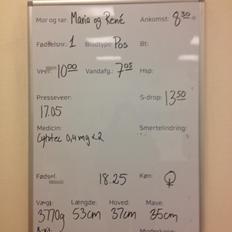 Mor og far: Maria og René Ankomst: 8.30
Fødselsnr: 1 Blodtype: Pos Bt:
Veer: 10.00 Vandafg.: 7.05 Hsp:
Presseveer: 17.05 S-drop: 13.50
Medicin: Smertelindring:
Cytotec 0,4 mg x 2
Fødsel: 18.25 Køn: ♀
Vægt: Længde: Hoved: Mave:
3770g 53cm 37cm 35cm